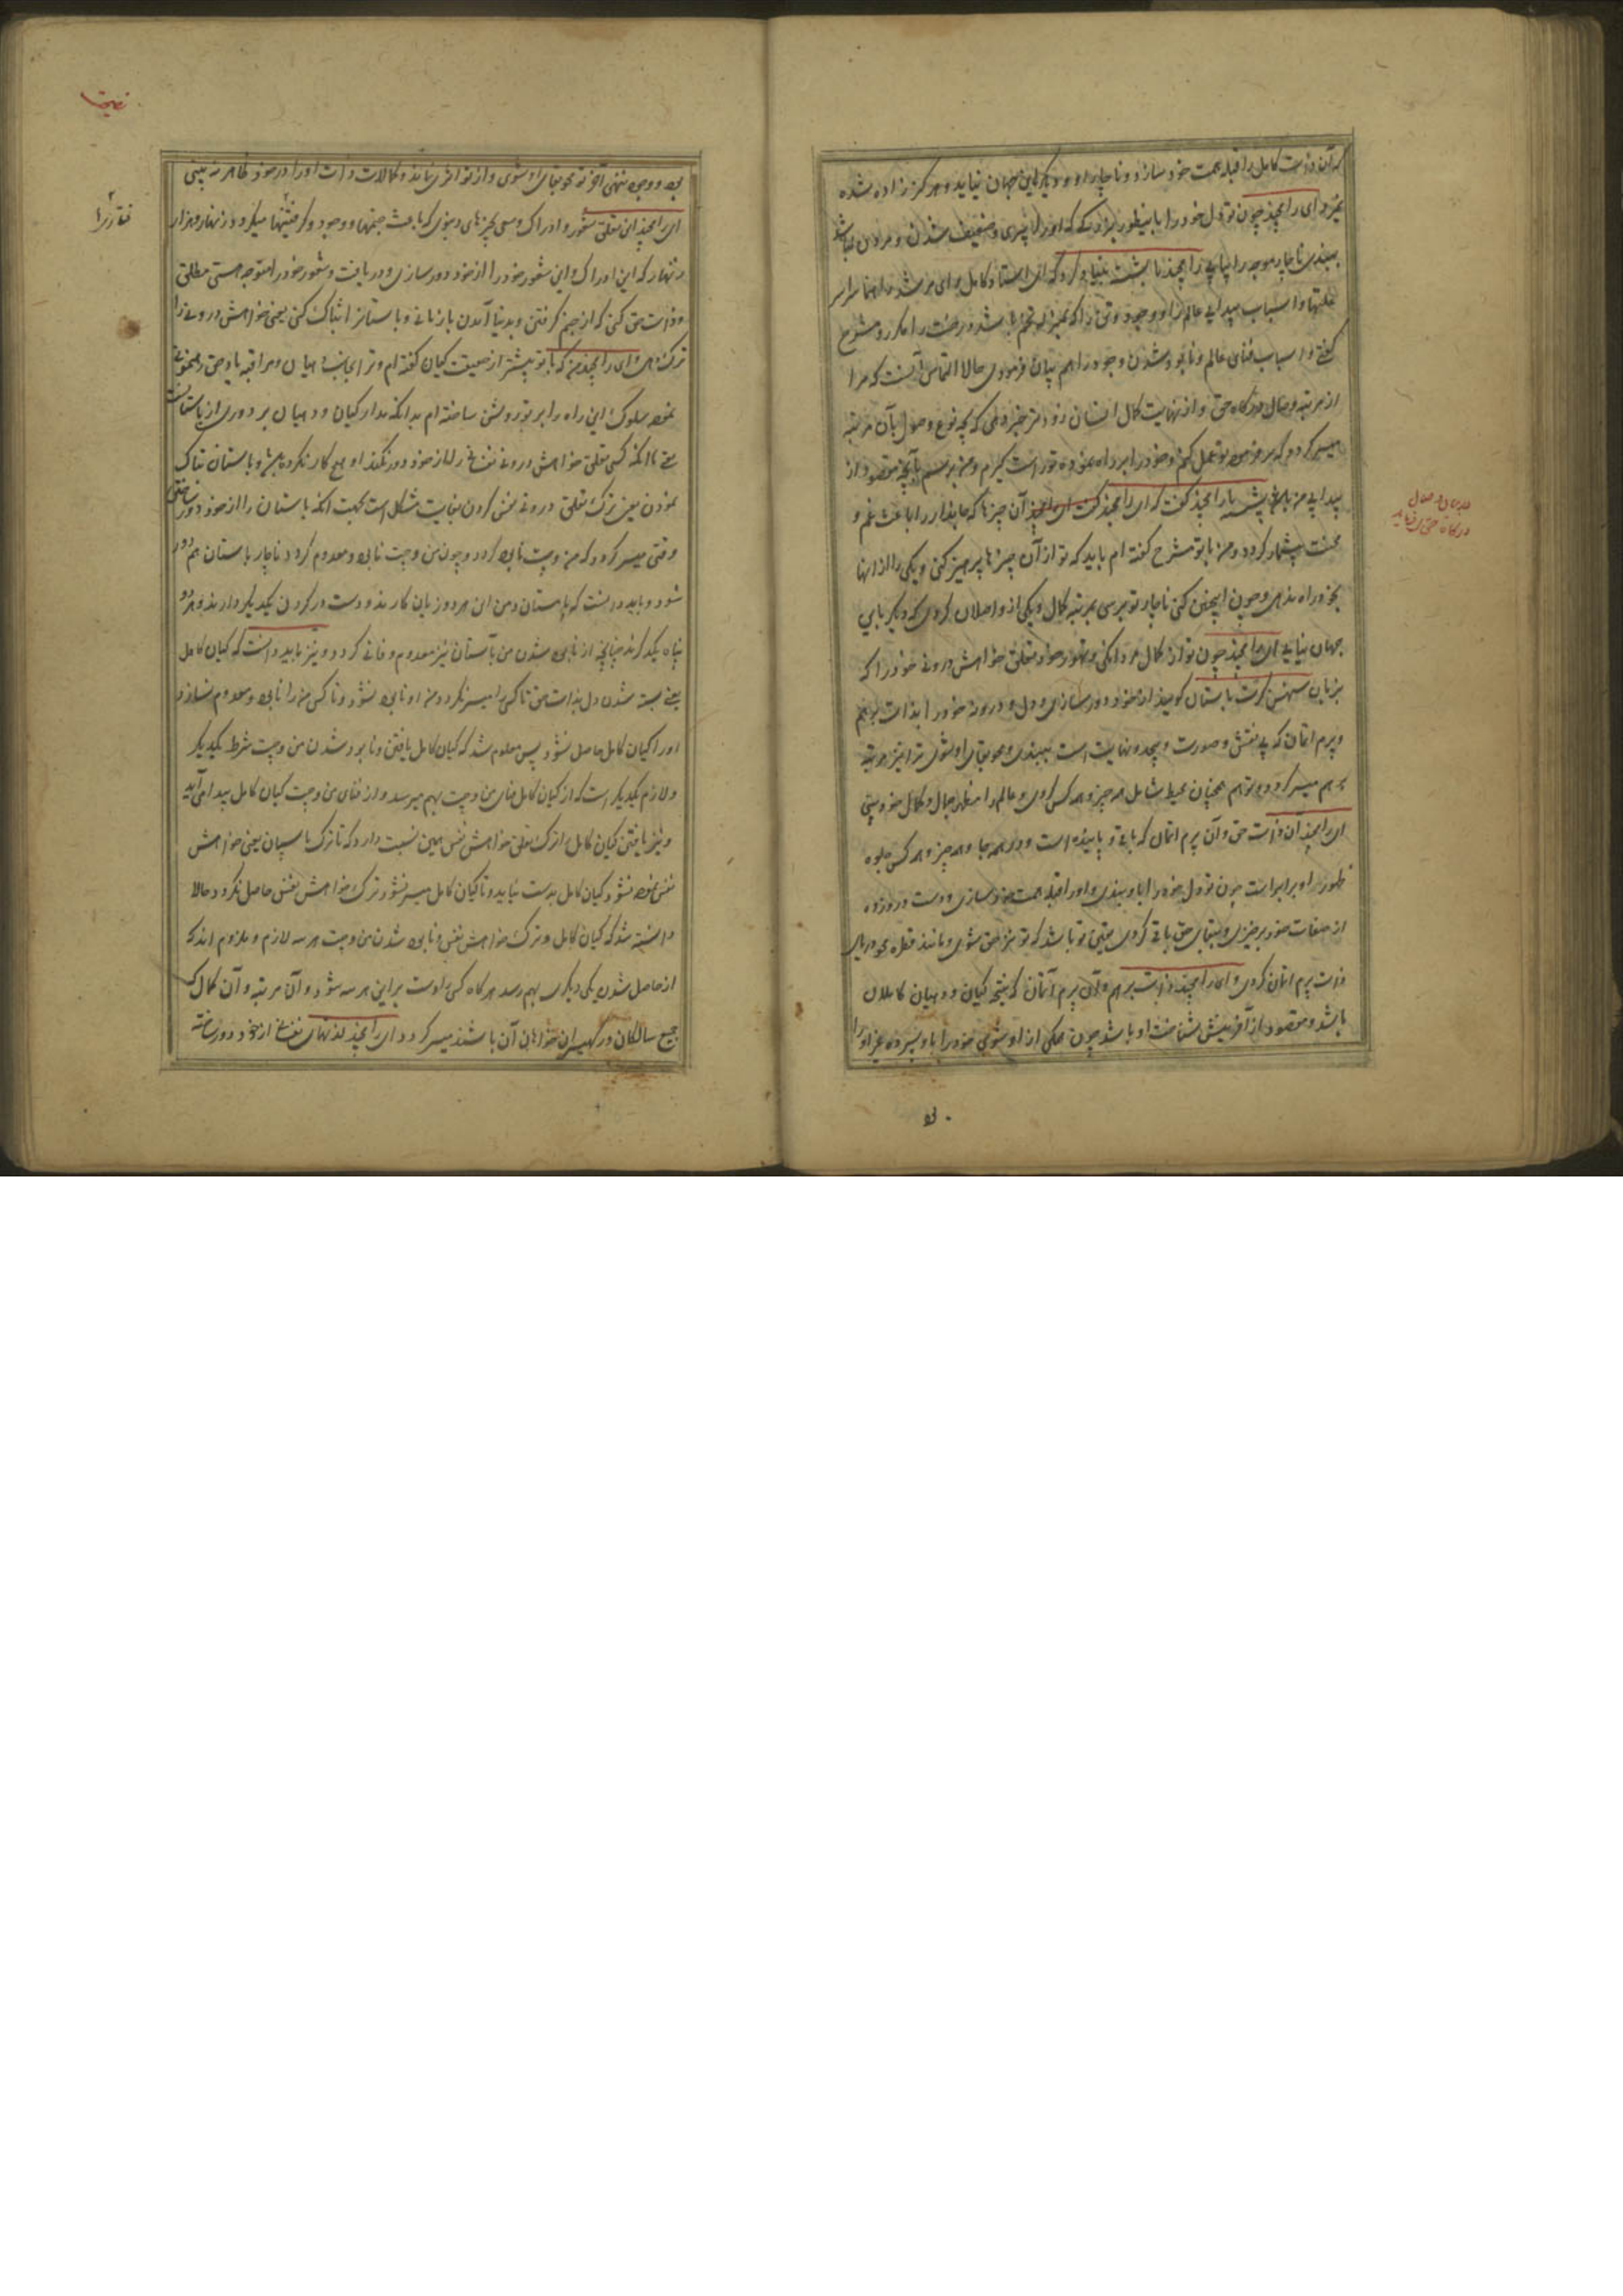 که آن ذات کامل را قبله همت خود سازد و ناچار او دیگر باین جهان نیاید و هرگز زاده نشده
نمیرد ای رامچند چون تو دل خود را باینطور
ببندی ناچار را بیابی رامچند با بشست التماس کرد که ای استاد کامل و ای مرشد
و اسباب پیدایی عالم را و وجود
گفتی و اسباب فنای عالم و نابود شدن وجود را هم بیان فرمودی حالا التماس آنست که مرا
از مرتبه وصال درگاه حق و از نهایت کمال انسان زودتر خبر دهی که بچه نوع وصول بآن مرتبه
میسر گردد که بر فرموده تو عمل کنم و خود را بر راه نموده تو راست گیرم و من برسم بآنچه مقصود از
پیدایی من باشد بشست با رامچند گفت که ای رامچند آن چیزها که ما پندار را باعث غم و
محنت بیشمار گردد و من با تو مشرح گفته ام باید که تو از آن چیزها پرهیز کنی و یکی را از آنها
بخود راه ندهی و چون اینچنین کنی ناچار تو برسی بمرتبه کمال و یکی از واصلان گردی که دیگر باین
جهان نیایی ای رامچند چون تو از کمال مردانگی و تهور خود تعلق خواهش درونی خود را که
بزبان سهنس کرت باستان گویند از خود دور سازی و دل و درونه خود را بذات برهم
و پرم اتمان که بی نقش و صورت و بیحد و نهایت است ببندی و محو بقای او شوی ترا نیز مرتبه
برهم میسر گردد و تو هم همچنان محیط شامل همه چیز و همه کس گردی و عالم را مظهر جمال و کمال خود بینی
ای رامچند آن ذات حق و آن پرم اتمان که باقی و پاینده است و در همه جا و همه چیز و همه کس جلوه
ظهور او برابر است چون تو دل خود را باو ببندی و او را قبله همت خود سازی و دست در زده
از صفات خود برخیزی و ببقای حق باقی گردی یقین تو باشد که تو نیز حق شوی و مانند قطره محو دریای
ذات پرم اتمان گردی و ای رامچند ذات برهم و آن پرم آتمان که نتیجه گیان و دهیان کاملان
باشد و مقصود از آفرینش شناخت او باشد چون همگی از او شوی خود را باو سپرده غیر او را
وصال
درگاه حق
نبود و وجود نهی آخر تو محو بقای او شوی و از تو اثری نماند و کمالات ذات او را در خود ظاهر بینی
ای رامچند این تعلق شعور و ادراک و سعی چیزهای دنیوی که باعث جنمها و وجود گرفتنها میگردد زنهار و هزار
زنهار که این ادراک و این شعور خود را از خود دور سازی و دریافت و شعور خود را متوجه هستی مطلق
و ذات حق کنی که از جنم گرفتن و بدنیا آمدن باز مانی و باستان را تیاگ کنی یعنی خواهش درونی را
ترک دهی ای رامچند من که با تو پیشتر از حقیقت گیان گفته ام و ترا بجانب دهیان و مراقبه یاد حق رهنمونی
نموده سلوک این راه را بر تو روشن ساخته ام بدانکه مدار گیان و دهیان بر دوری از باستانست
یعنی تا آنکه کسی تعلق خواهش درونی نفسانی را از خود دور نکند او هیچ کار نکرده باشد و باستان تیاگ
نمودن یعنی ترک تعلق درونی نفس کردن بغایت مشکل است بجهت آنکه باستان را از خود دور ساختن
وقتی میسر گردد که من وچت نابود گردد و چون من وچت نابود و معدوم گردد ناچار باستان هم دور
شود و باید دانست که باستان و من این هر دو زیان کارند و دست در گردن یکدیگر دارند و هر دو
پناه یکدیگرند چنانچه از نابود شدن من باستان نیز معدوم و فانی گردد و نیز باید دانست که گیان کامل
یعنی بسته شدن دل بذات حق تا کسی را میسر نگردد من او نابود نشود و تا کسی من را نابود و معدوم نسازد
او را گیان کامل حاصل نشود پس معلوم شد که گیان کامل یافتن و نابود شدن من وچت شرط یکدیگر
و لازم یکدیگر است که از گیان کامل فنای من وچت بهم میرسد و از فنای من وچت گیان کامل پیدا می آید
و نیز یافتن گیان کامل از ترک تعلق خواهش نفس همین نسبت دارد که تا ترک باستان یعنی خواهش
نفس نموده نشود گیان کامل بدست نیاید و تا گیان کامل میسر نشود ترک خواهش نفس حاصل نگردد حالا
دانسته شد که گیان کامل و ترک خواهش نفس و نابود شدن من وچت هر سه لازم و ملزوم اند که
از حاصل شدن یکی دیگری بهم رسد هرگاه کسی را دست بر این هر سه شود و آن مرتبه و آن کمال که
جمیع سالکان و رکهیسران خواهان آن باشند میسر گردد ای رامچند لذتهای نفسانی از خود دور ساخته